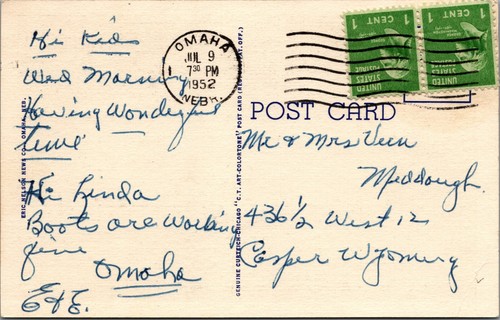 Hi Kids
Wed Morning
Having Wonderful
time
Hi Linda
Boots are Working
fine
Omaha
E & E.
OMAHA
JUL 9
730 PM
1952
NEBR.
1 CENT 1
UNITED STATES POSTAGE
1 CENT 1
UNITED STATES POSTAGE
POST CARD
ERIC NELSON NEWS CO., OMAHA, NEB.
GENUINE CURTEICH-CHICAGO "C.T. ART-COLORTONE" POST CARD (REG. U.S. PAT. OFF.)
Mr & Mrs Vern
Meddough
436½ West 12
Casper Wyoming